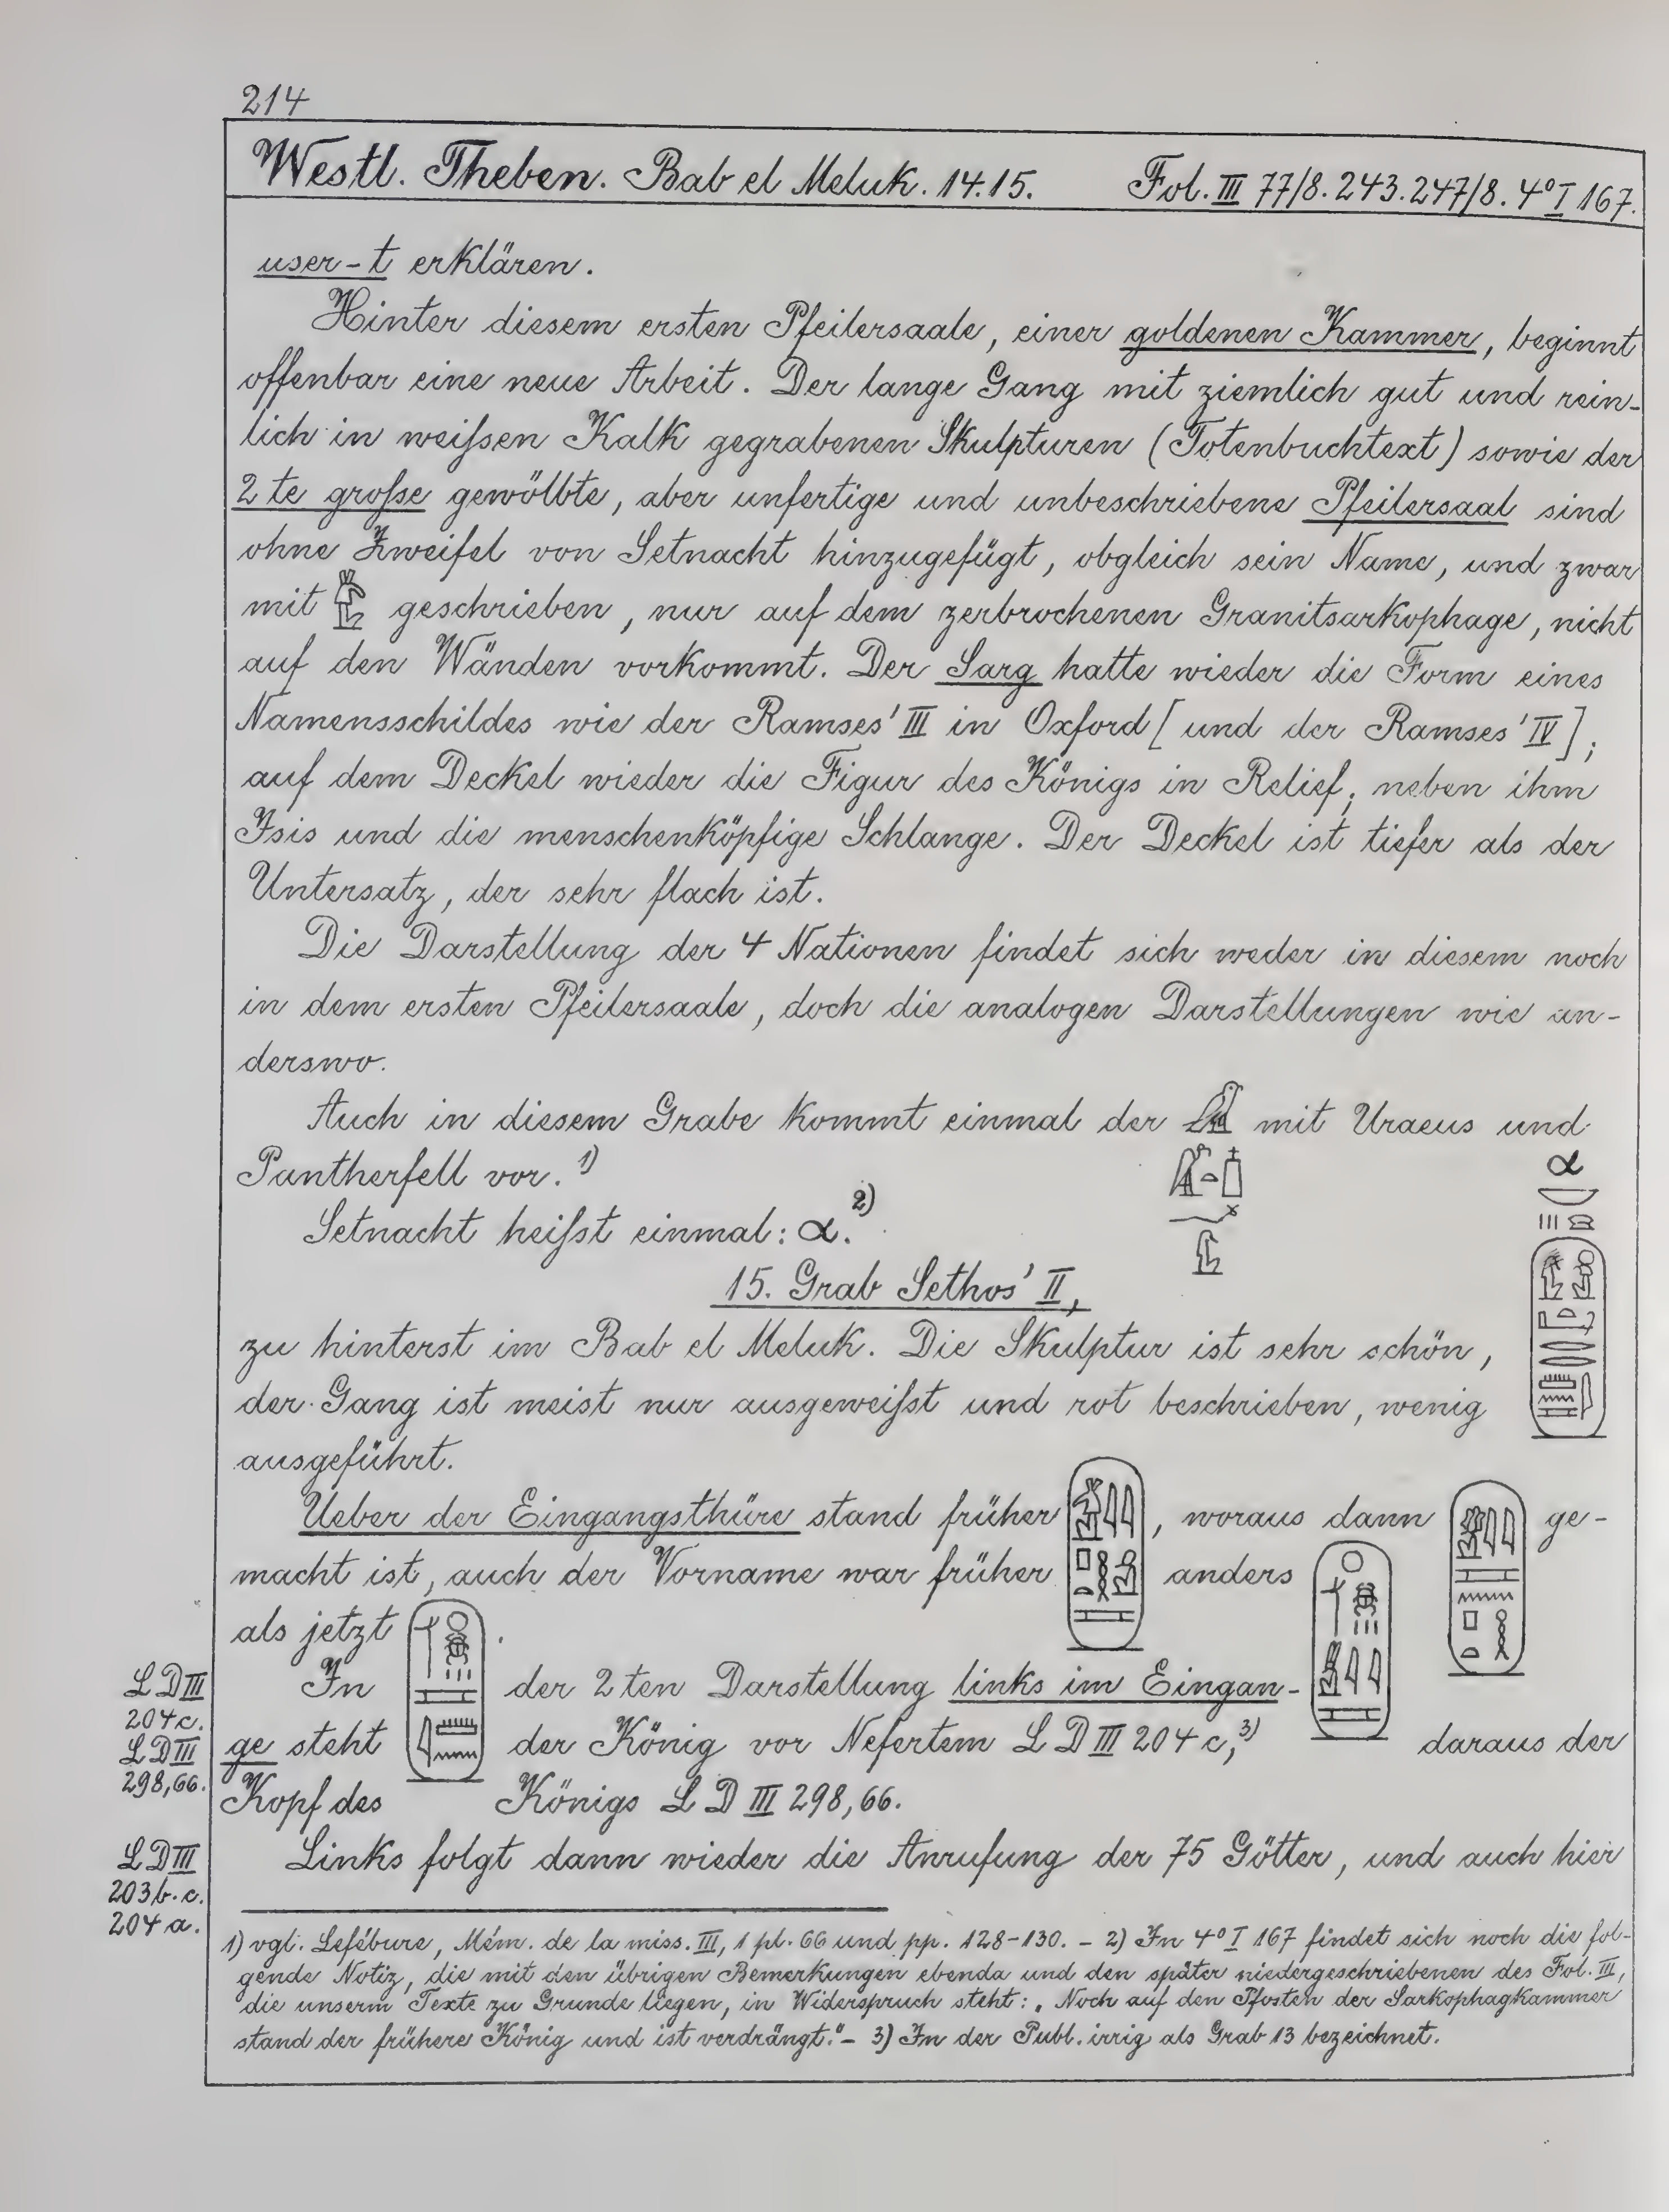 214
Westl. Theben. Bab el Meluk. 14.15. Fol. III 77/8. 243. 247/8. 4º I 167.
user-t erklären.
Hinter diesem ersten Pfeilersaale, einer goldenen Kammer, beginnt
offenbar eine neue Arbeit. Der lange Gang mit ziemlich gut und rein-
lich in weißen Kalk gegrabenen Skulpturen (Totenbuchtext) sowie der
2te große gewölbte, aber unfertige und unbeschriebene Pfeilersaal sind
ohne Zweifel von Setnacht hinzugefügt, obgleich sein Name, und zwar
mit geschrieben, nur auf dem zerbrochenen Granitsarkophage, nicht
auf den Wänden vorkommt. Der Sarg hatte wieder die Form eines
Namensschildes wie der Ramses' III in Oxford [und der Ramses' IV];
auf dem Deckel wieder die Figur des Königs in Relief, neben ihm
Isis und die menschenköpfige Schlange. Der Deckel ist tiefer als der
Untersatz, der sehr flach ist.
Die Darstellung der 4 Nationen findet sich weder in diesem noch
in dem ersten Pfeilersaale, doch die analogen Darstellungen wie an-
derswo.
Auch in diesem Grabe kommt einmal der mit Uraeus und
Pantherfell vor. 1)
α
Setnacht heißt einmal: α. 2)
15. Grab Sethos' II,
zu hinterst im Bab el Meluk. Die Skulptur ist sehr schön,
der Gang ist meist nur ausgeweißt und rot beschrieben, wenig
ausgeführt.
Ueber der Eingangsthüre stand früher , woraus dann ge-
macht ist, auch der Vorname war früher anders
als jetzt .
LD III
204 c.
LD III
298,66.
In der 2ten Darstellung links im Eingan-
ge steht der König vor Nefertem LD III 204 c, 3) daraus der
Kopf des Königs LD III 298,66.
LD III
203 b. c.
204 a.
Links folgt dann wieder die Anrufung der 75 Götter, und auch hier
1) vgl. Lefébure, Mém. de la miss. III, 1 pl. 66 und pp. 128-130. – 2) In 4º I 167 findet sich noch die fol-
gende Notiz, die mit den übrigen Bemerkungen ebenda und den später niedergeschriebenen des Fol. III,
die unserm Texte zu Grunde liegen, in Widerspruch steht: „Noch auf den Pfosten der Sarkophagkammer
stand der frühere König und ist verdrängt." – 3) In der Publ. irrig als Grab 13 bezeichnet.